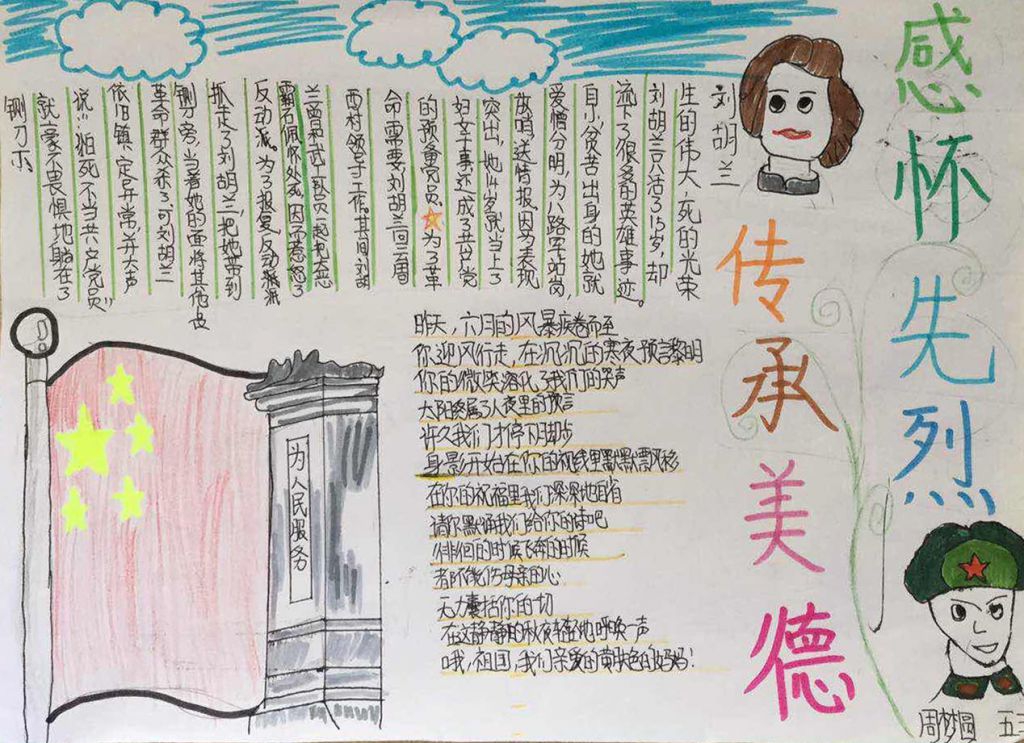 感怀先烈
传承美德
刘胡兰
生的伟大，死的光荣
刘胡兰只活了15岁，却
流下了很多的英雄事迹。
自小贫苦出身的她就
爱憎分明，为八路军站岗，
放哨，送情报，因为表现
突出，她14岁就当上了
妇女干事还成了共产党
的预备党员，为了革
命需要刘胡兰回到
西村领导工作。其间刘胡
兰曾和武工队员一起把大恶
霸石佩怀处死，因而惹怒了
反动派。为了报复，反动派派
抓走了刘胡兰，把她带到
铡刀旁，当着她的面将其他
革命群众杀了，可刘胡兰
依旧镇定异常，并大声
说：“怕死不当共产党员”
就毫不畏惧地躺在了
铡刀下。
昨天，六月的风暴疾卷而至
你迎风行走，在沉沉的寒夜预言黎明
你的微笑溶化了我们的笑声
太阳终属了人夜里的预言
许久我们才停下脚步
身影开始在你的视线里默默飘移
在你的祝福里我们深深地自省
请你默诵我们给你的诗吧
徘徊的时候飞奔的时候
都不能伤母亲的心
无力囊括你的一切
在这静静的秋夜轻轻地呼唤一声
哦，祖国，我们亲爱的黄肤色的妈妈！
为人民服务
周梦圆 五三